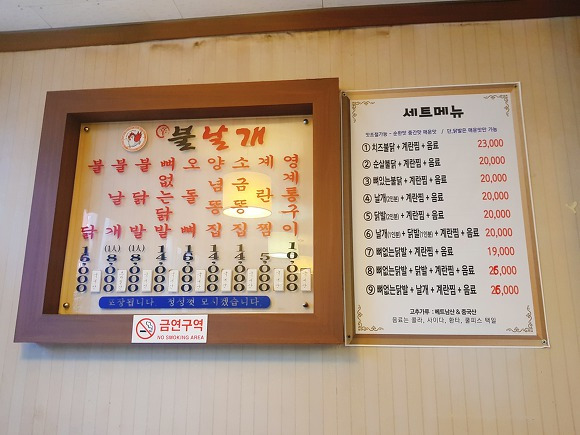 불날개
불닭 16,000
불날개 (1人) 8,000
불닭발 (1人) 8,000
뼈없는닭발 14,000
오돌뼈 16,000
양념똥집 14,000
소금똥집 14,000
계란찜 5,000
영계통구이 10,000
포장됩니다. 정성껏 모시겠습니다.
금연구역
NO SMOKING AREA
세트메뉴
맛조절가능 - 순한맛 중간맛 매운맛 / 단,닭발은 매운맛만 가능
① 치즈불닭 + 계란찜 + 음료 23,000
② 순살불닭 + 계란찜 + 음료 20,000
③ 뼈있는불닭 + 계란찜 + 음료 20,000
④ 날개(2인분) + 계란찜 + 음료 20,000
⑤ 닭발(2인분) + 계란찜 + 음료 20,000
⑥ 날개(1인분) + 닭발(1인분) + 계란찜 + 음료 20,000
⑦ 뼈없는닭발 + 계란찜 + 음료 19,000
⑧ 뼈없는닭발 + 닭발 + 계란찜 + 음료 26,000
⑨ 뼈없는닭발 + 날개 + 계란찜 + 음료 26,000
고추가루 : 베트남산 & 중국산
음료는 콜라, 사이다, 환타, 쿨피스 택일